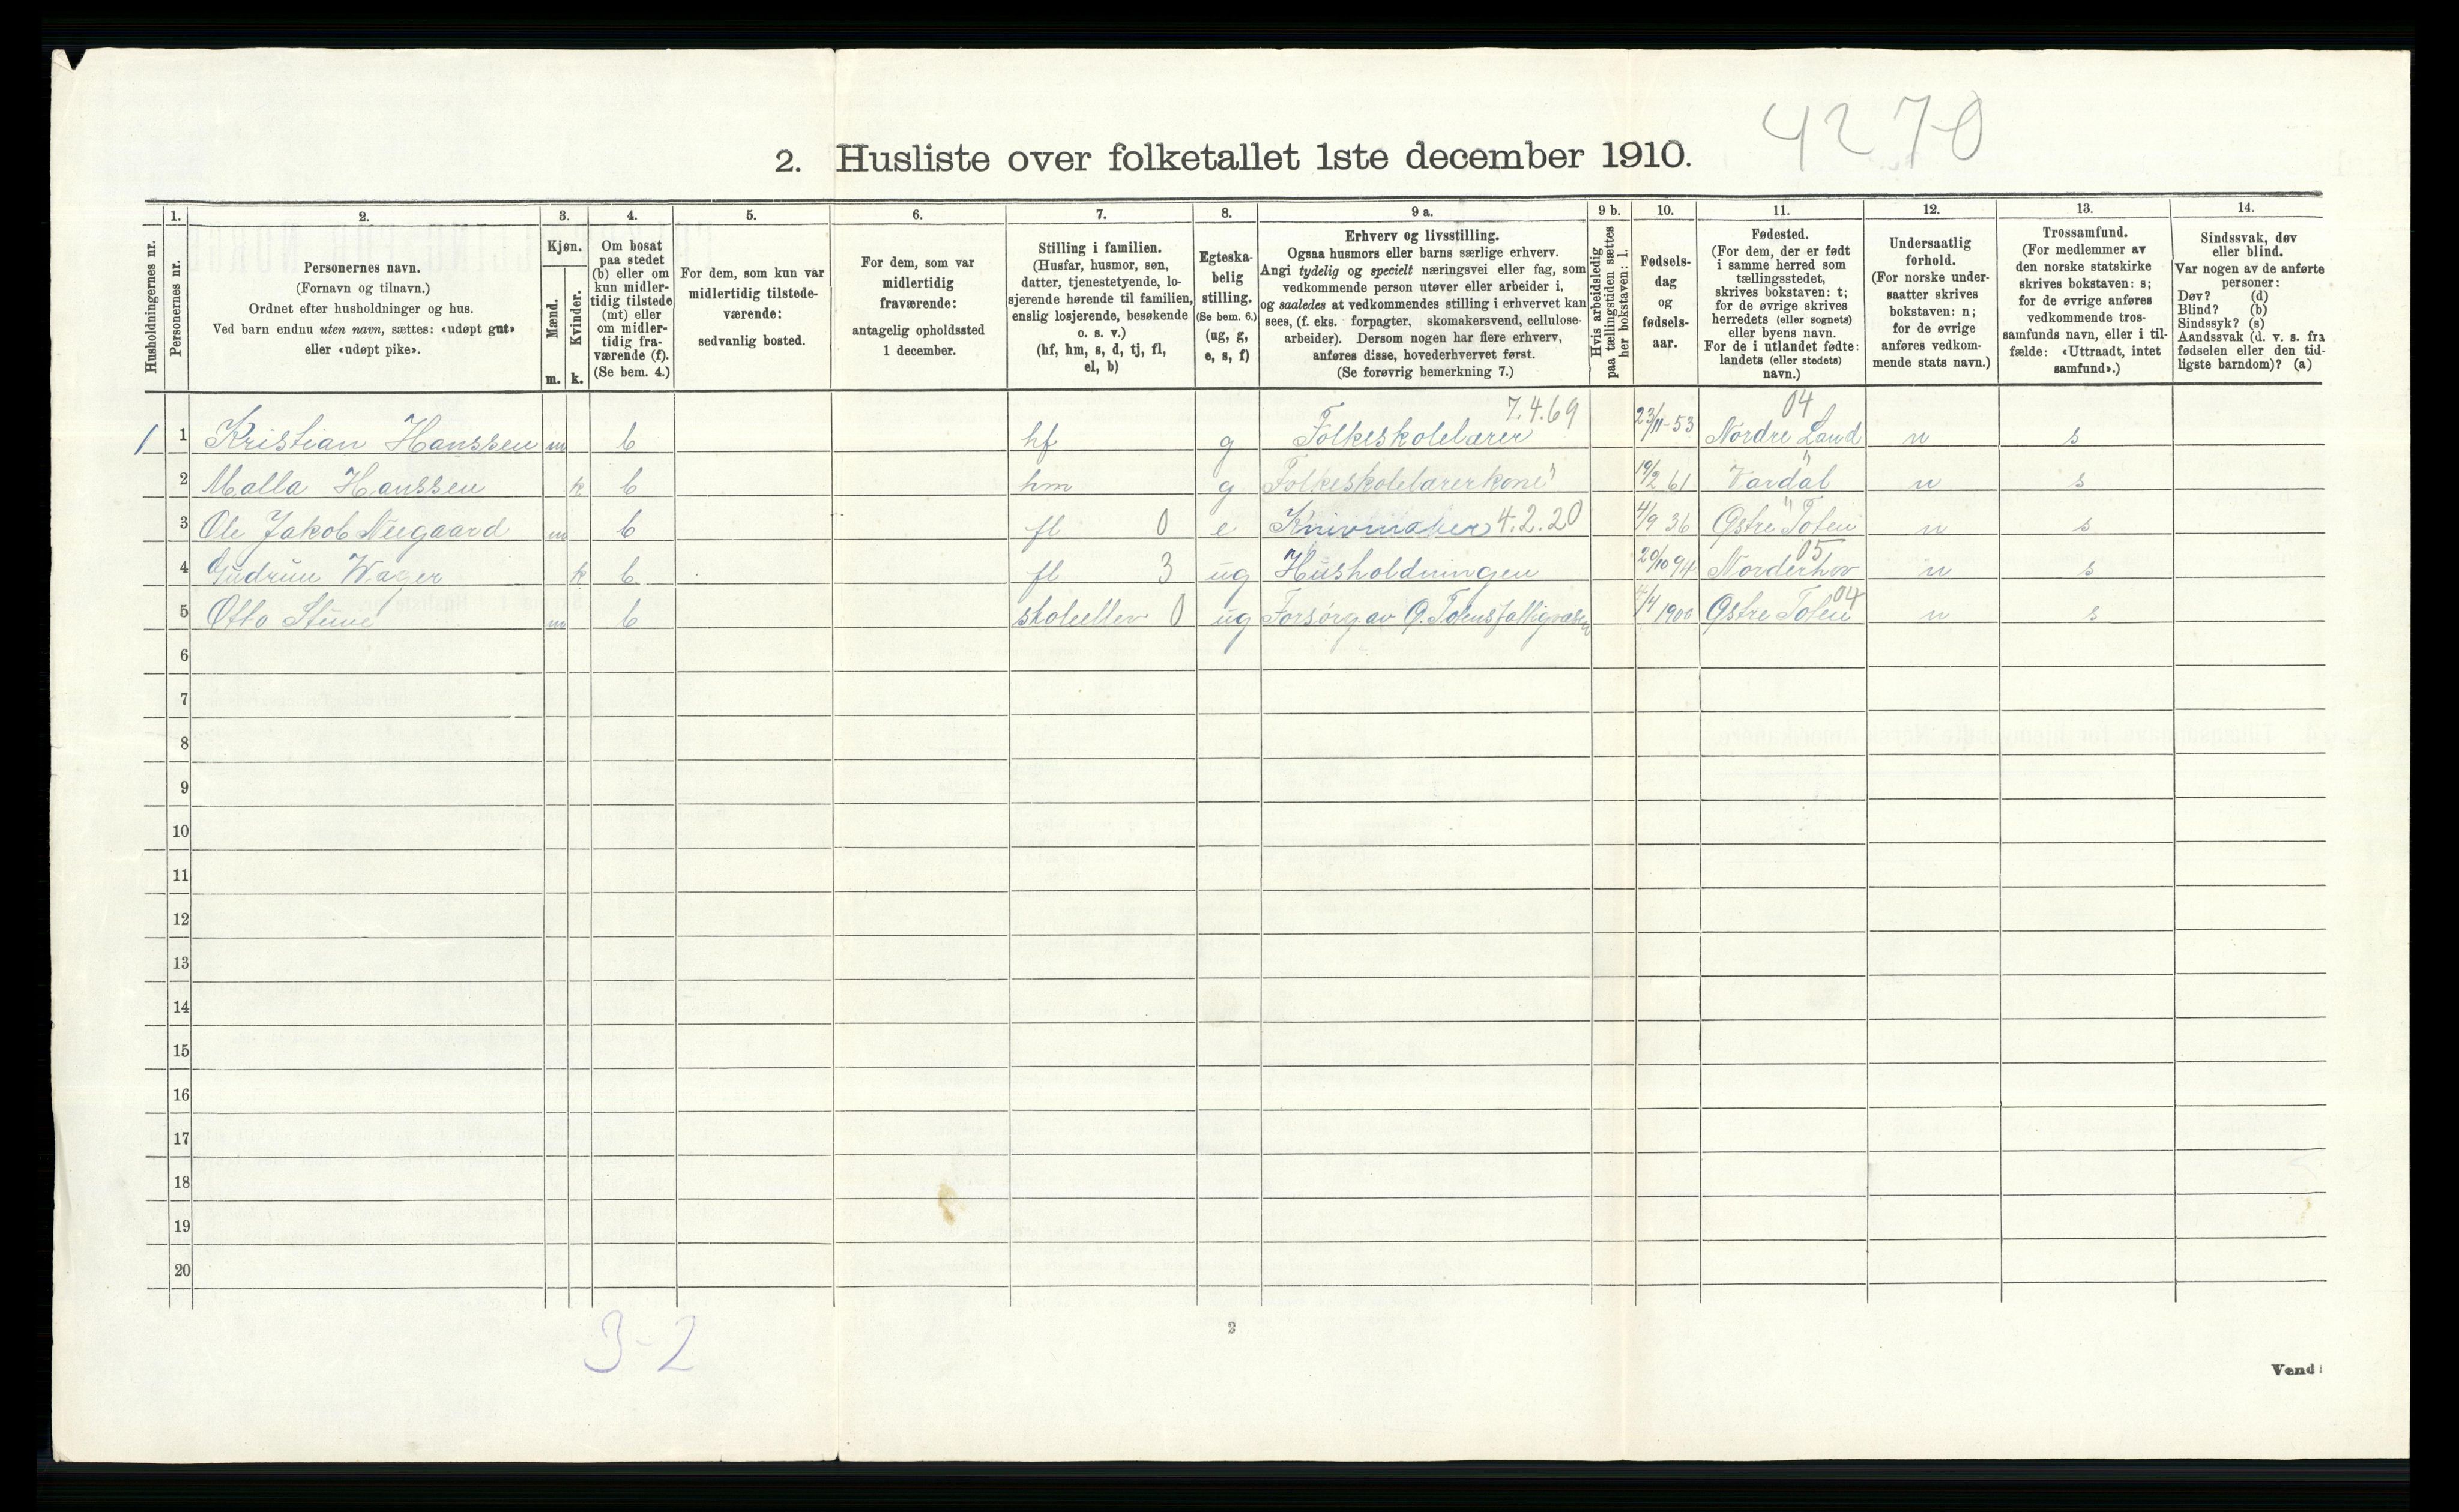 4270
2. Husliste over folketallet 1ste december 1910.
Husholdningernes nr.
1.
Personernes nr.
2.
Personernes navn.
(Fornavn og tilnavn.)
Ordnet efter husholdninger og hus.
Ved barn endnu uten navn, sættes: «udøpt gut»
eller «udøpt pike».
3.
Kjøn.
Mænd.
Kvinder.
m. k.
4.
Om bosat
paa stedet
(b) eller om
kun midler-
tidig tilstede
(mt) eller
om midler-
tidig fra-
værende (f).
(Se bem. 4.)
5.
For dem, som kun var
midlertidig tilstede-
værende:
sedvanlig bosted.
6.
For dem, som var
midlertidig
fraværende:
antagelig opholdssted
1 december.
7.
Stilling i familien.
(Husfar, husmor, søn,
datter, tjenestetyende, lo-
sjerende hørende til familien,
enslig losjerende, besøkende
o. s. v.)
(hf, hm, s, d, tj, fl,
el, b)
8.
Egteska-
belig
stilling.
(Se bem. 6.)
(ug, g,
e, s, f)
9 a.
Erhverv og livsstilling.
Ogsaa husmors eller barns særlige erhverv.
Angi tydelig og specielt næringsvei eller fag, som
vedkommende person utøver eller arbeider i,
og saaledes at vedkommendes stilling i erhvervet kan
sees, (f. eks. forpagter, skomakersvend, cellulose-
arbeider). Dersom nogen har flere erhverv,
anføres disse, hovederhvervet først.
(Se forøvrig bemerkning 7.)
9 b.
Hvis arbeidsledig
paa tællingstiden sættes
her bokstaven: l.
10.
Fødsels-
dag
og
fødsels-
aar.
11.
Fødested.
(For dem, der er født
i samme herred som
tællingsstedet,
skrives bokstaven: t;
for de øvrige skrives
herredets (eller sognets)
eller byens navn.
For de i utlandet fødte:
landets (eller stedets)
navn.)
12.
Undersaatlig
forhold.
(For norske under-
saatter skrives
bokstaven: n;
for de øvrige
anføres vedkom-
mende stats navn.)
13.
Trossamfund.
(For medlemmer av
den norske statskirke
skrives bokstaven: s;
for de øvrige anføres
vedkommende tros-
samfunds navn, eller i til-
fælde: «Uttraadt, intet
samfund».)
14.
Sindssvak, døv
eller blind.
Var nogen av de anførte
personer:
Døv? (d)
Blind? (b)
Sindssyk? (s)
Aandssvak (d. v. s. fra
fødselen eller den tid-
ligste barndom)? (a)
7.4.69 04
1 1 Kristian Hanssen m b hf g Folkeskolelærer 23/11-53 Nordre Land n s
2 Malla Hanssen k b hm g Folkeskolelærerkone 19/2 61 " Vardal n s
3 Ole Jakob Neegaard m b fl 0 e Knivmaker 4.2.20 4/9 36 " Østre Toten n s
4 Gudrun Wager k b fl 3 ug Husholdningen 20/10 94 05 Norderhov n s
5 Otto Stuve m b skoleelev 0 ug Forsørg av Ø. Totens fattigvæsen 4/4 1900 Østre Toten 04 n s
6
7
8
9
10
11
12
13
14
15
16
17
18
19
20
3-2
2
Vend!